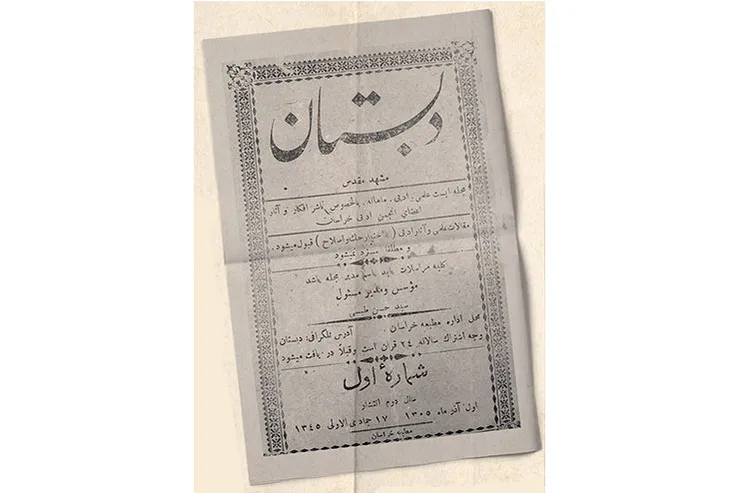 دبستان
مشهد مقدس
مجله ایست علمی، ادبی، ماهانه، بالخصوص ناشر افکار و آثار
اعضای انجمن ادبی خراسان
مقالات علمی و آثار ادبی (با اختیار حك و اصلاح) قبول میشود.
و مطلقا مسترد نمیشود
کلیه مراسلات باید باسم مدیر مجله باشد
مؤسس و مدیر مسئول
سید حسن طبسی
محل اداره مطبعه خراسان. آدرس تلگرافی: دبستان
وجه اشتراك سالانه ۲٤ قران است و قبلاً در یافت میشود
شمارهٔ اول
سال دوم انتشار
اول آذر ماه ۱۳۰۵ ۱۷ جمادی الاولی ۱۳٤۵
مطبعه خراسان